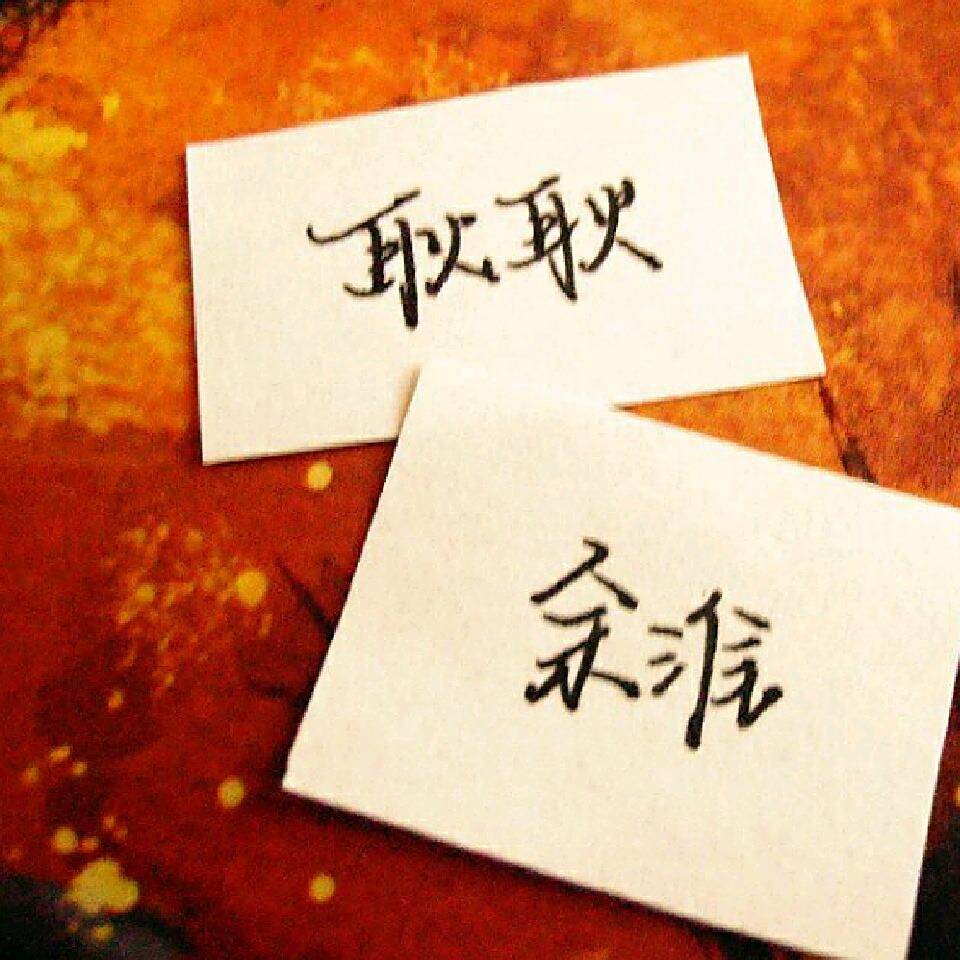 耿耿
余淮